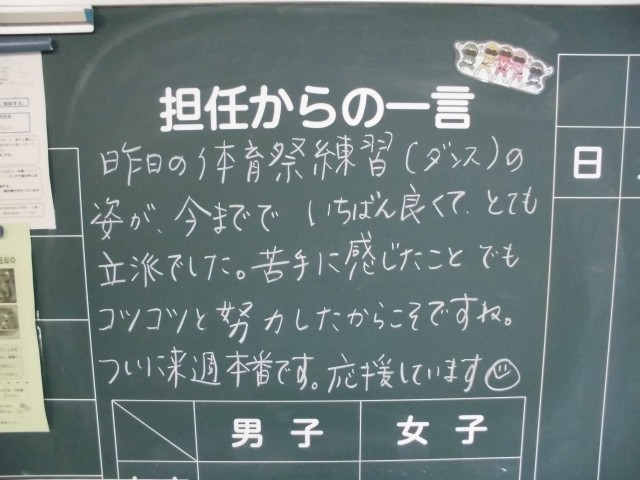 担任からの一言
昨日の体育祭練習(ダンス)の
姿が、今までで いちばん良くて、とても
立派でした。苦手に感じたことでも
コツコツと努力したからこそですね。
ついに来週本番です。応援しています
日
男子 女子